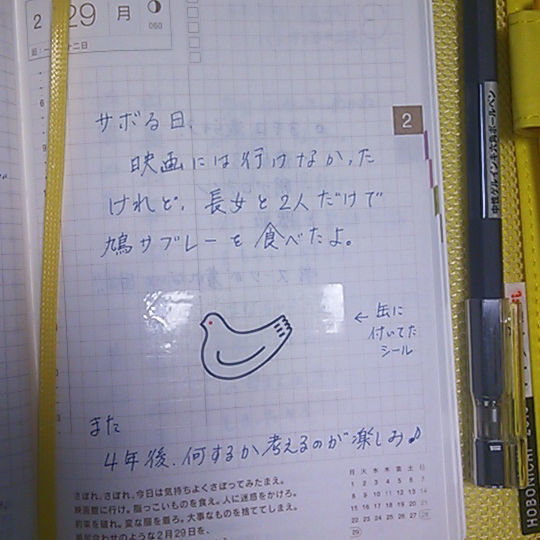 2
29
月
060
サボる日、
映画には行けなかった
けれど、長女と2人だけで
鳩サブレーを食べたよ。
← 缶に
付いてた
シール
また
4年後、何するか考えるのが楽しみ♪
さぼれ、さぼれ、今日は気持ちよくさぼってみたまえ。
映画館に行け。脂っこいものを食え。人に迷惑をかけろ。
約束を破れ。変な服を着ろ。大事なものを捨ててしまえ。
2
月 火 水 木 金 土 日
1 2 3 4 5 6 7
8 9 10 11 12 13 14
15 16 17 18 19 20 21
22 23 24 25 26 27 28
29
中性ゲルインキ水性ボールペン
HOBONICHI